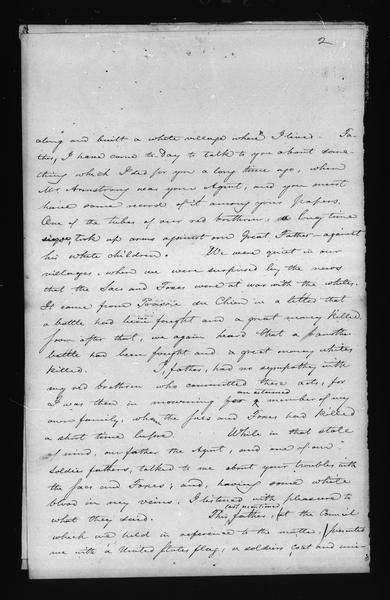 2
along and built a white village where I live. Fa-
ther, I have come to-day to talk to you about some-
thing which I did for you a long time ago, when
Mr. Armstrong was your Agent, and you must
have some record of it among your papers.
One of the tribes of our red brethren, a long time
ago took up arms against our Great Father - against
his white children. We were quiet in our
villages, when we were surprised by the news
that the Sacs and Foxes were at war with the whites.
It came from Prairie du Chien in a letter that
a battle had been fought and a great many killed.
Soon after that, we again heard that another
battle had been fought and a great many whites
killed. I, father, had no sympathy with
my red brethren who committed these acts, for
I was then in mourning for an esteemed member of my
own family, whom the Sacs and Foxes had killed
a short time before. While in that state
of mind, our father the Agent, and one of our
soldier fathers, talked to me about your troubles with
the Sacs and Foxes; and, having some white
blood in my veins, I listened with pleasure to
what they said. This last mentioned father, at the Council
which we held in reference to the matter, presented
me with a United States flag, a soldiers coat and uni-